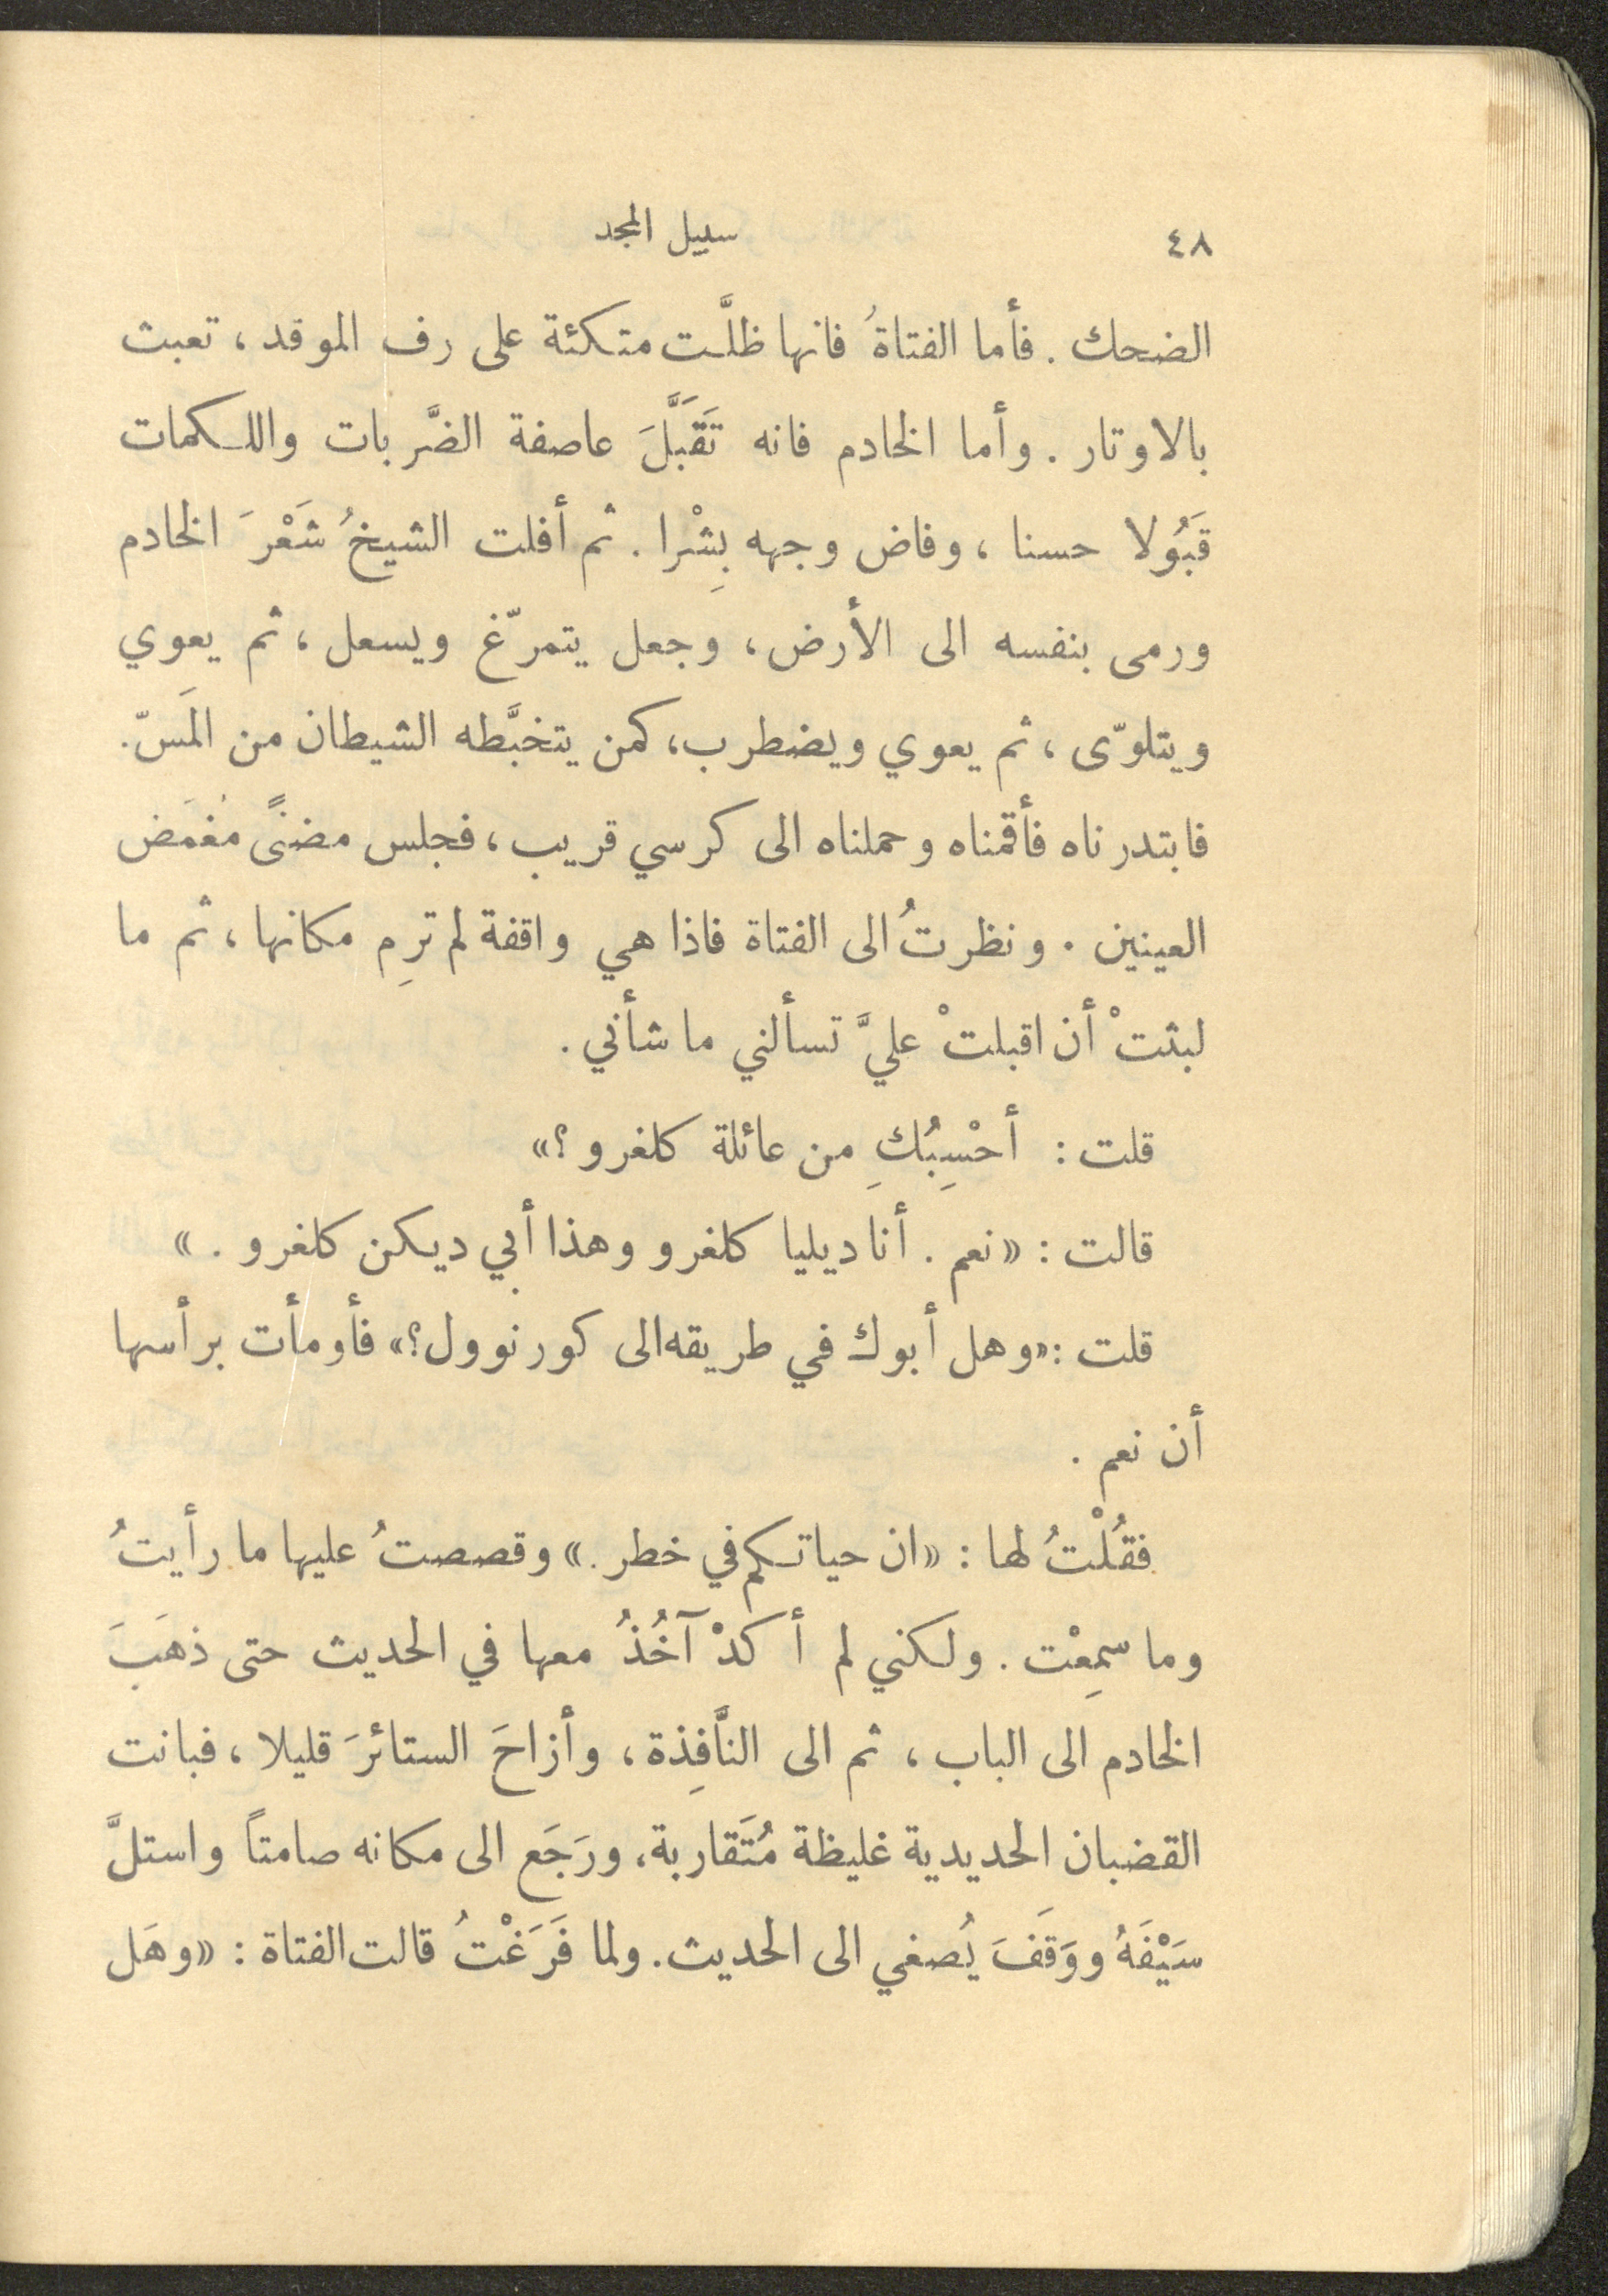 ٤٨ سبيل المجد
الضحك . فأما الفتاةُ فانها ظلَّت متكئة على رف الموقد ، تعبث
بالاوتار . وأما الخادم فانه تَقَبَّلَ عاصفة الضَّربات واللكمات
قَبُولا حسنا ، وفاض وجهه بِشْرا . ثم أفلت الشيخُ شَعْرَ الخادم
ورمى بنفسه الى الأرض ، وجعل يتمرّغ ويسعل ، ثم يعوي
ويتلوّى ، ثم يعوي ويضطرب ، كمن يتخبَّطه الشيطان من المَسّ .
فابتدرناه فأقمناه وحملناه الى كرسي قريب ، فجلس مضنىً مُغمَض
العينين . ونظرتُ الى الفتاة فاذا هي واقفة لم ترِم مكانها ، ثم ما
لبثتْ أن اقبلتْ عليَّ تسألني ما شأني .
قلت : أحْسِبُكِ من عائلة كلغرو ؟»
قالت : «نعم . أنا ديليا كلغرو وهذا أبي ديكن كلغرو . »
قلت : «وهل أبوك في طريقه الى كورنوول ؟» فأومأت برأسها
أن نعم .
فقُلْتُ لها : «ان حياتكم في خطر .» وقصصتُ عليها ما رأيتُ
وما سمِعْت . ولكني لم أكدْ آخُذُ معها في الحديث حتى ذهَبَ
الخادم الى الباب ، ثم الى النَّافِذة ، وأزاحَ الستائرَ قليلا ، فبانت
القضبان الحديدية غليظة مُتَقاربة ، ورَجَع الى مكانه صامتاً واستلَّ
سَيْفَهُ ووَقَفَ يُصغي الى الحديث . ولما فَرَغْتُ قالت الفتاة : «وهَل